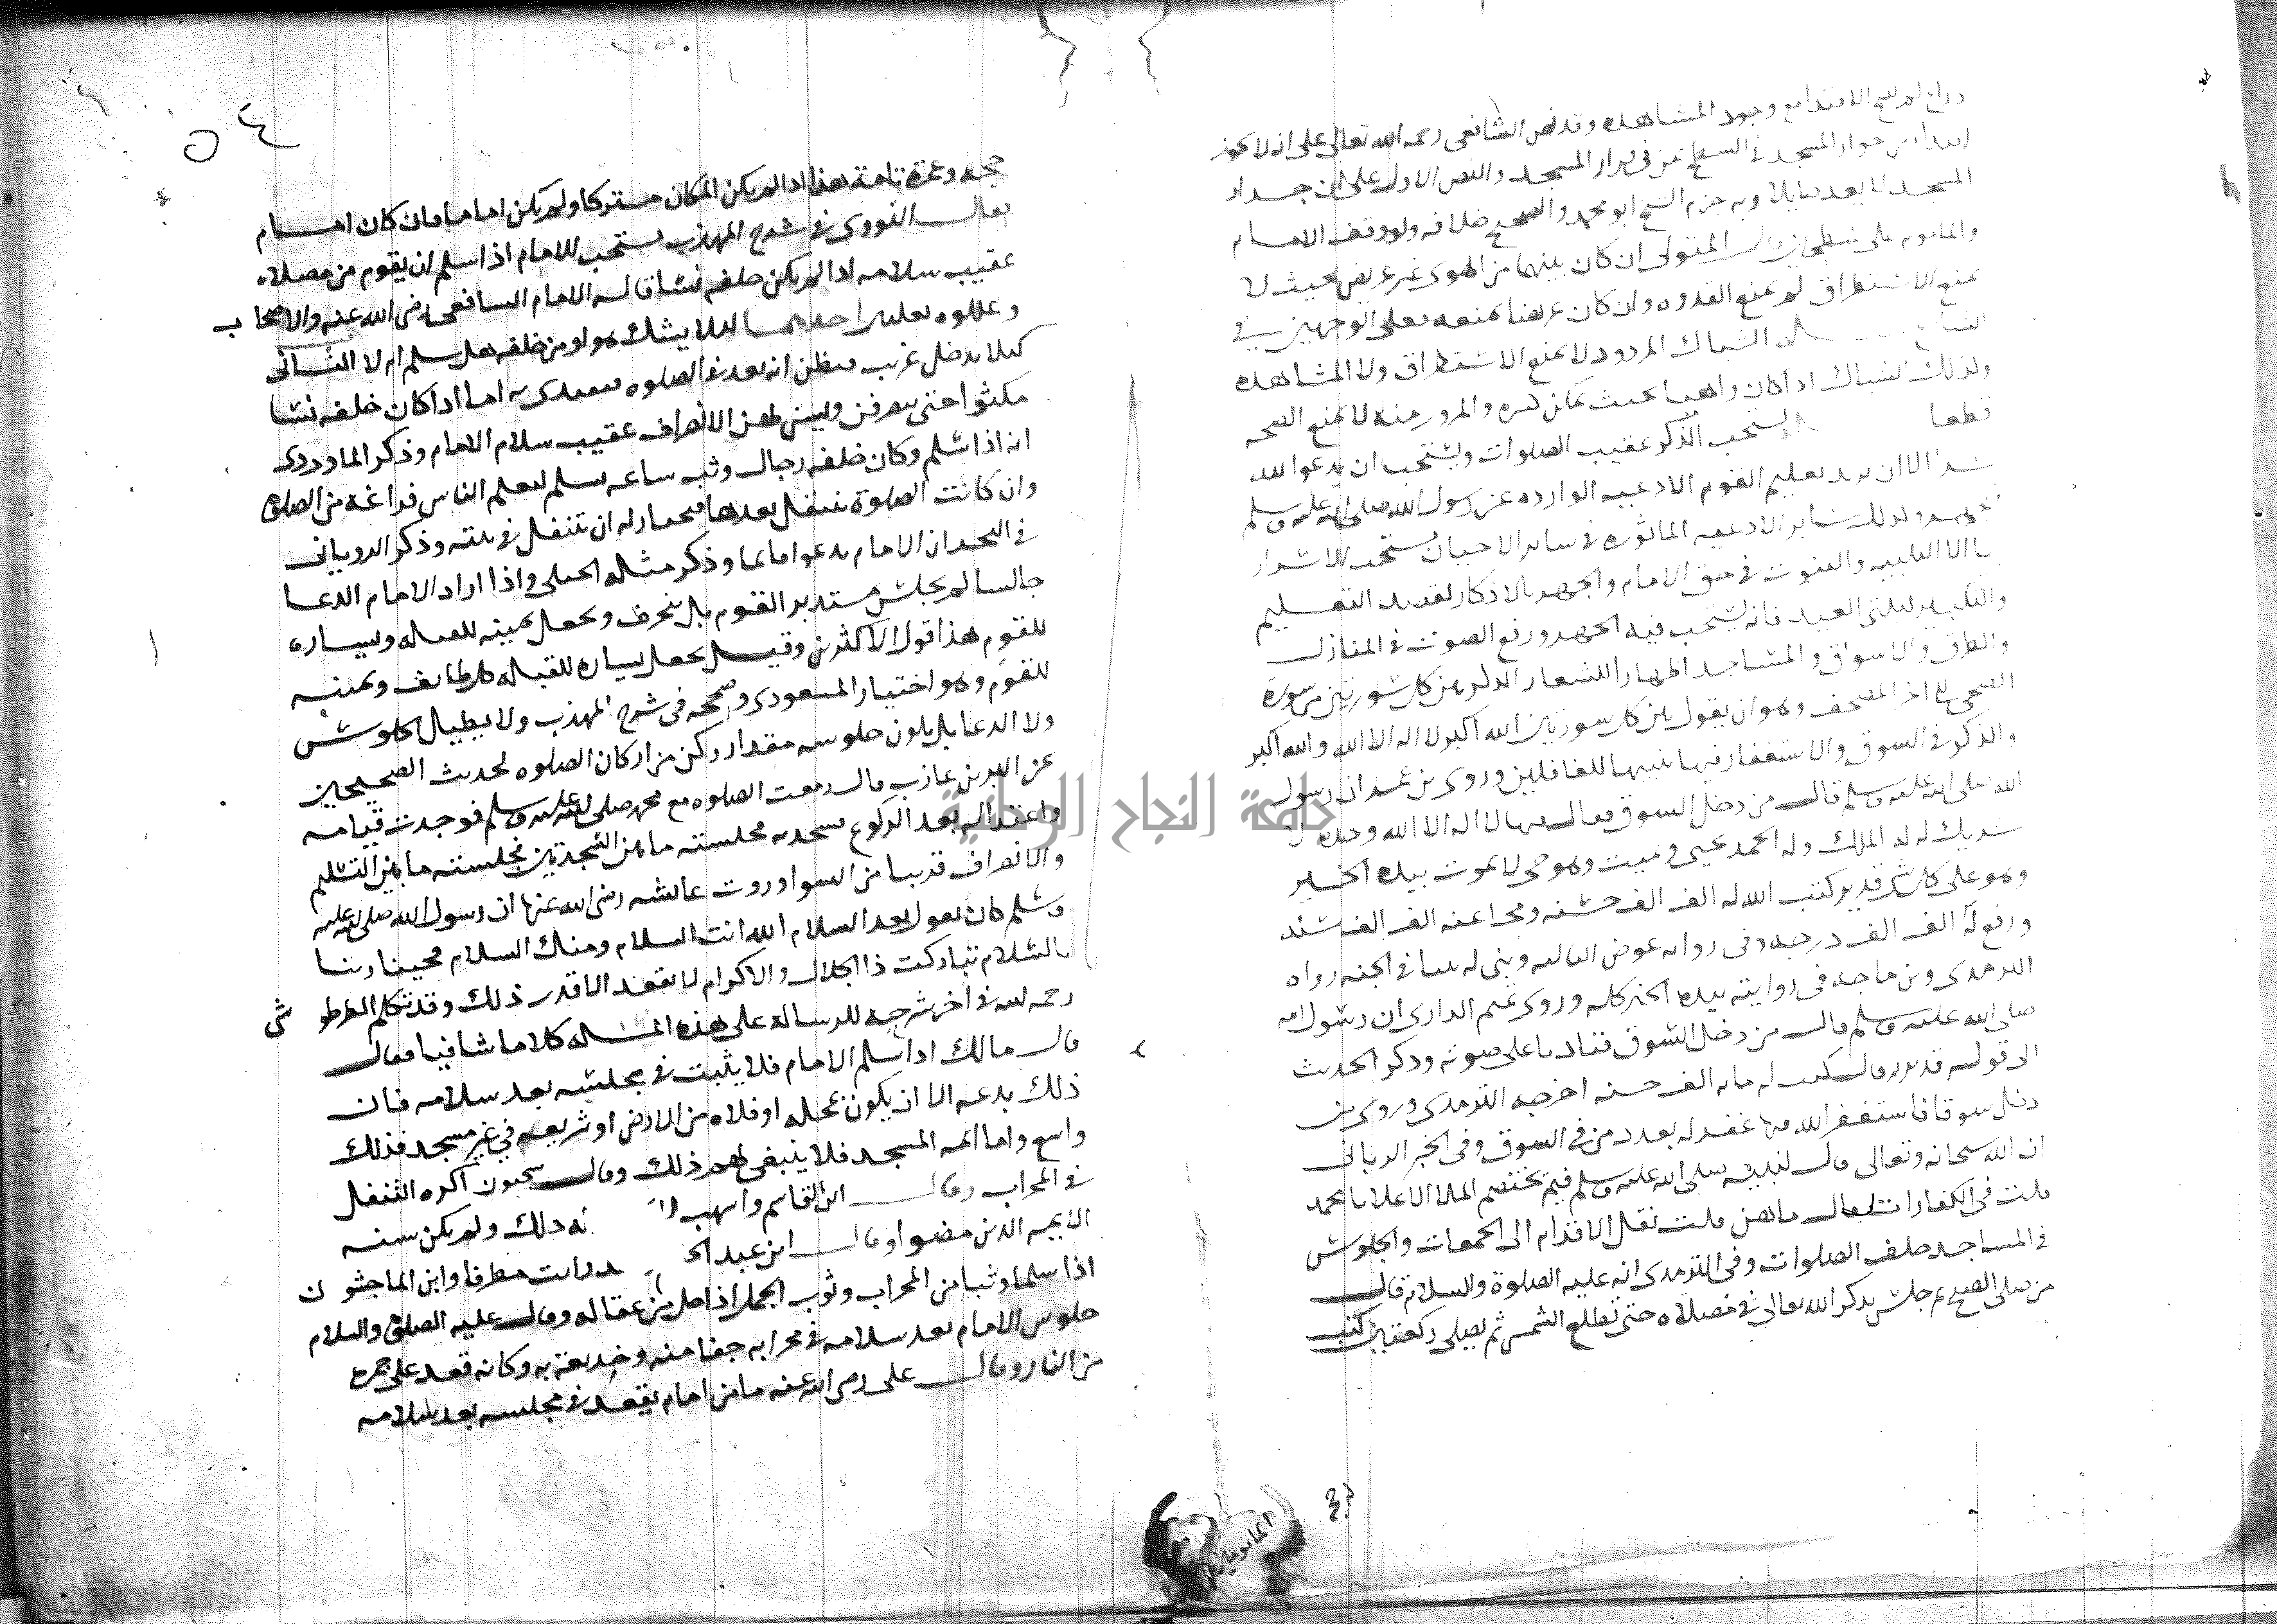 دراع لم يصح الاقتدا مع وجود المشاهده وقد نص الشافعى رحمه الله تعالى على انه لا يجوز
المسجد فى السطح بمن فى المسجد والنص الاول على ان جدار
المسجد لا يعد حايلا وبه جزم الشيخ ابو محمد والصحيح خلافه ولو وقف الامام
والماموم على قال المتولى ان كان بينهما من الهوى غير عريض بحيث لا
يمنع الاستطراق لم يمنع القدوه وان كان عريضا يمنعه فعلى الوجهين فى
الشباك المردود لا يمنع الاستطراق ولا المشاهده
وكذلك الشباك اذا كان واهيا بحيث يمكن كسره والمرور منه لا يمنع الصحه
قطعا يستحب الذكر عقيب الصلوات ويستحب ان يدعوا لله
سرا الا ان يريد تعليم القوم الادعيه الوارده عن رسول الله صلى الله عليه وسلم
فيجهر وكذلك ساير الادعيه الماثوره فى ساير الاحيان يستحب الاسرار
بها الا التلبيه والقنوت فى حق الامام والجهر بالاذكار لقصد التعليم
والتكبير ليلتى العيد فانه يستحب فيه الجهر ورفع الصوت فى المنازل
والطرق والاسواق والمساجد اظهارا للشعار الدكر بين كل سورتين من سورة
الضحى الى اخر المصحف وهو ان يقول بين كل سورتين الله اكبر لا اله الا الله والله اكبر
والذكر فى السوق والاستغفار فيها تنبيها للغافلين وروى بن عمر ان رسول
الله صلى الله عليه وسلم قال من دخل السوق فقال فيها لا اله الا الله وحده لا
شريك له له الملك وله الحمد يحيى ويميت وهو حى لا يموت بيده الخير
وهو على كل شى قدير كتب الله له الف الف حسنه ومحا عنه الف الف سيه
ورفع له الف الف درجه وفى روايه عوض الثالثه وبنى له بيتا فى الجنه رواه
الترمذى وبن ماجه فى روايته بيده الخير كله وروى تميم الدارى ان رسول الله
صلى الله عليه وسلم قال من دخل السوق فنادى باعلى صوته وذكر الحديث
الى قوله قدير قال كتب له مايه الف حسنه اخرجه الترمذى وروى من
دخل سوقا فاستغفر الله فيها غفر له بعدد من فى السوق وفى الخبر الربانى
ان الله سبحانه وتعالى قال لنبيه صلى الله عليه وسلم فيم يختصم الملا الاعلا يا محمد
قلت فى الكفارات فقال ما هن قلت نقل الاقدام الى الجمعات والجلوس
فى المساجد خلف الصلوات وفى الترمذى انه عليه الصلوة والسلام قال
من صلى الصبح ثم جلس يذكر الله تعالى فى مصلاه حتى تطلع الشمس ثم يصلى ركعتين كتب
٥٤
حجه وعمرة تامة هذا اذا لم يكن المكان مستركا ولم يكن اماما فان كان امام
فقال النووى فى شرح المهذب يستحب للامام اذا سلم ان يقوم من مصلاه
عقيب سلامه اذا لم يكن خلفه نسا قاله الامام الشافعى رضى الله عنه والاصحاب
وعللوه بعلتين احدهما لئلا يشك هو او من خلفه هل سلم ام لا الثانى
كيلا يدخل غريب فيظن انه بعد فى الصلوه فيقتدى به اما اذا كان خلفه نسا
مكثوا حتى ينصرفن ويسن لهن الانصراف عقيب سلام الامام وذكر الماوردى
انه اذا سلم وكان خلفه رجال وثب ساعه يسلم ليعلم الناس فراغه من الصلوة
وان كانت الصلوة يتنفل بعدها فيختار له ان تنفل فى بيته وذكر الرويانى
فى البحر ان الامام يدعوا قايما وذكر مثله الجيلى واذا اراد الامام الدعا
جالسا لم يجلس مستدبر القوم بل ينحرف ويجعل يمينه للقبله ويساره
للقوم هذا قول الاكثرين وقيل يجعل يساره للقبله كالطايف ويمينه
للقوم وهو اختيار المسعودى وصححه فى شرح المهذب ولا يطيل الجلوس
ولا الدعا بل يكون جلوسه مقدار ركن من اركان الصلوه لحديث الصحيحين
عن البرا بن عازب قال رمقت الصلوه مع محمد صلى الله عليه وسلم فوجدت قيامه
واعتداله بعد الركوع فسجدته فجلسته ما بين السجدتين فجلسته ما بين التسليم
والانصراف قريبا من السوا وروت عائشه رضى الله عنها ان رسول الله صلى الله عليه
وسلم كان يقول بعد السلام اللهم انت السلام ومنك السلام فحينا ربنا
بالسلام تباركت ذا الجلال والاكرام لا يقعد الا قدر ذلك وقد تكلم الطرطوشى
رحمه الله فى اخر شرحه للرساله على هذه المسله كلاما شافيا فقال
قال مالك اذا سلم الامام فلا يثبت فى مجلسه بعد سلامه فان
ذلك بدعه الا ان يكون بمحله او فلاه من الارض او فى غير مسجد فذلك
واسع واما ايمه المسجد فلا ينبغى لهم ذلك وقال سحنون اكره التنفل
فى المحراب وقال ابن القاسم واشهب ذلك ولم يكن سنه
الايمه الذين مضوا وقال ابن عبد رايت مطرفا وابن الماجشون
اذا سلما وثبا من المحراب وثوب الجمل اذا حل من عقاله وقال عليه الصلوة والسلام
جلوس الامام بعد سلامه فى محرابه جفا منه وخديعة به وكانه قعد على جمره
من النار وقال على رضى الله عنه ما من امام يقعد فى مجلسه بعد سلامه
جامعة النجاح الوطنية